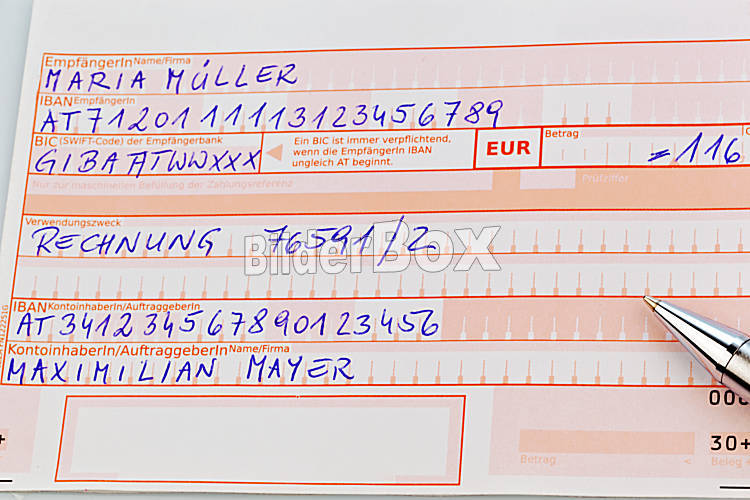 EmpfängerIn Name/Firma
MARIA MÜLLER
IBAN EmpfängerIn
AT7120111113123456789
BIC (SWIFT-Code) der Empfängerbank
GIBAATWWXXX
Ein BIC ist immer verpflichtend,
wenn die EmpfängerIn IBAN
ungleich AT beginnt.
EUR
Betrag
=116
Nur zur maschinellen Befüllung der Zahlungsreferenz
Prüfziffer
Verwendungszweck
RECHNUNG 76591/2
BilderBOX
IBAN KontoinhaberIn/AuftraggeberIn
AT341234567890123456
KontoinhaberIn/AuftraggeberIn Name/Firma
MAXIMILIAN MAYER
30+
Betrag <
Beleg +